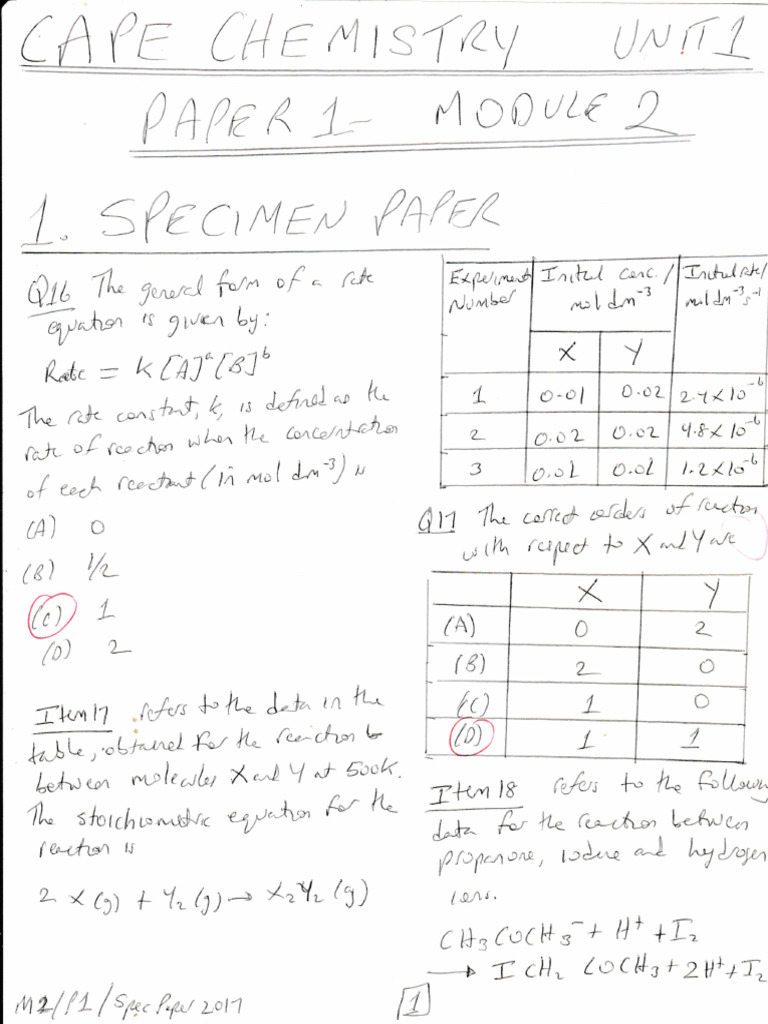 CAPE CHEMISTRY UNIT 1
PAPER 1 - MODULE 2
1. SPECIMEN PAPER
Q16 The general form of a rate
equation is given by:
Rate = K[A]ᵃ[B]ᵇ
The rate constant, k, is defined as the
rate of reaction when the concentration
of each reactant (in mol dm⁻³) is
(A) 0
(B) 1/2
(C) 1
(D) 2
Item 17 refers to the data in the
table, obtained for the reaction b
between molecules X and Y at 500K.
The stoichiometric equation for the
reaction is
2 X(g) + Y₂(g) → X₂Y₂(g)
M2/P1/Spec Paper 2017
Experiment Number | Initial conc./ mol dm⁻³ | Initial rate/ mol dm⁻³ s⁻¹
X | Y
1 | 0.01 | 0.02 | 2.4×10⁻⁶
2 | 0.02 | 0.02 | 4.8×10⁻⁶
3 | 0.01 | 0.01 | 1.2×10⁻⁶
Q17 The correct orders of reaction
with respect to X and Y are
X Y
(A) 0 2
(B) 2 0
(C) 1 0
(D) 1 1
Item 18 refers to the following
data for the reaction between
propanone, iodine and hydrogen
ions.
CH₃COCH₃⁻ + H⁺ + I₂
→ ICH₂COCH₃ + 2H⁺ + I₂
1